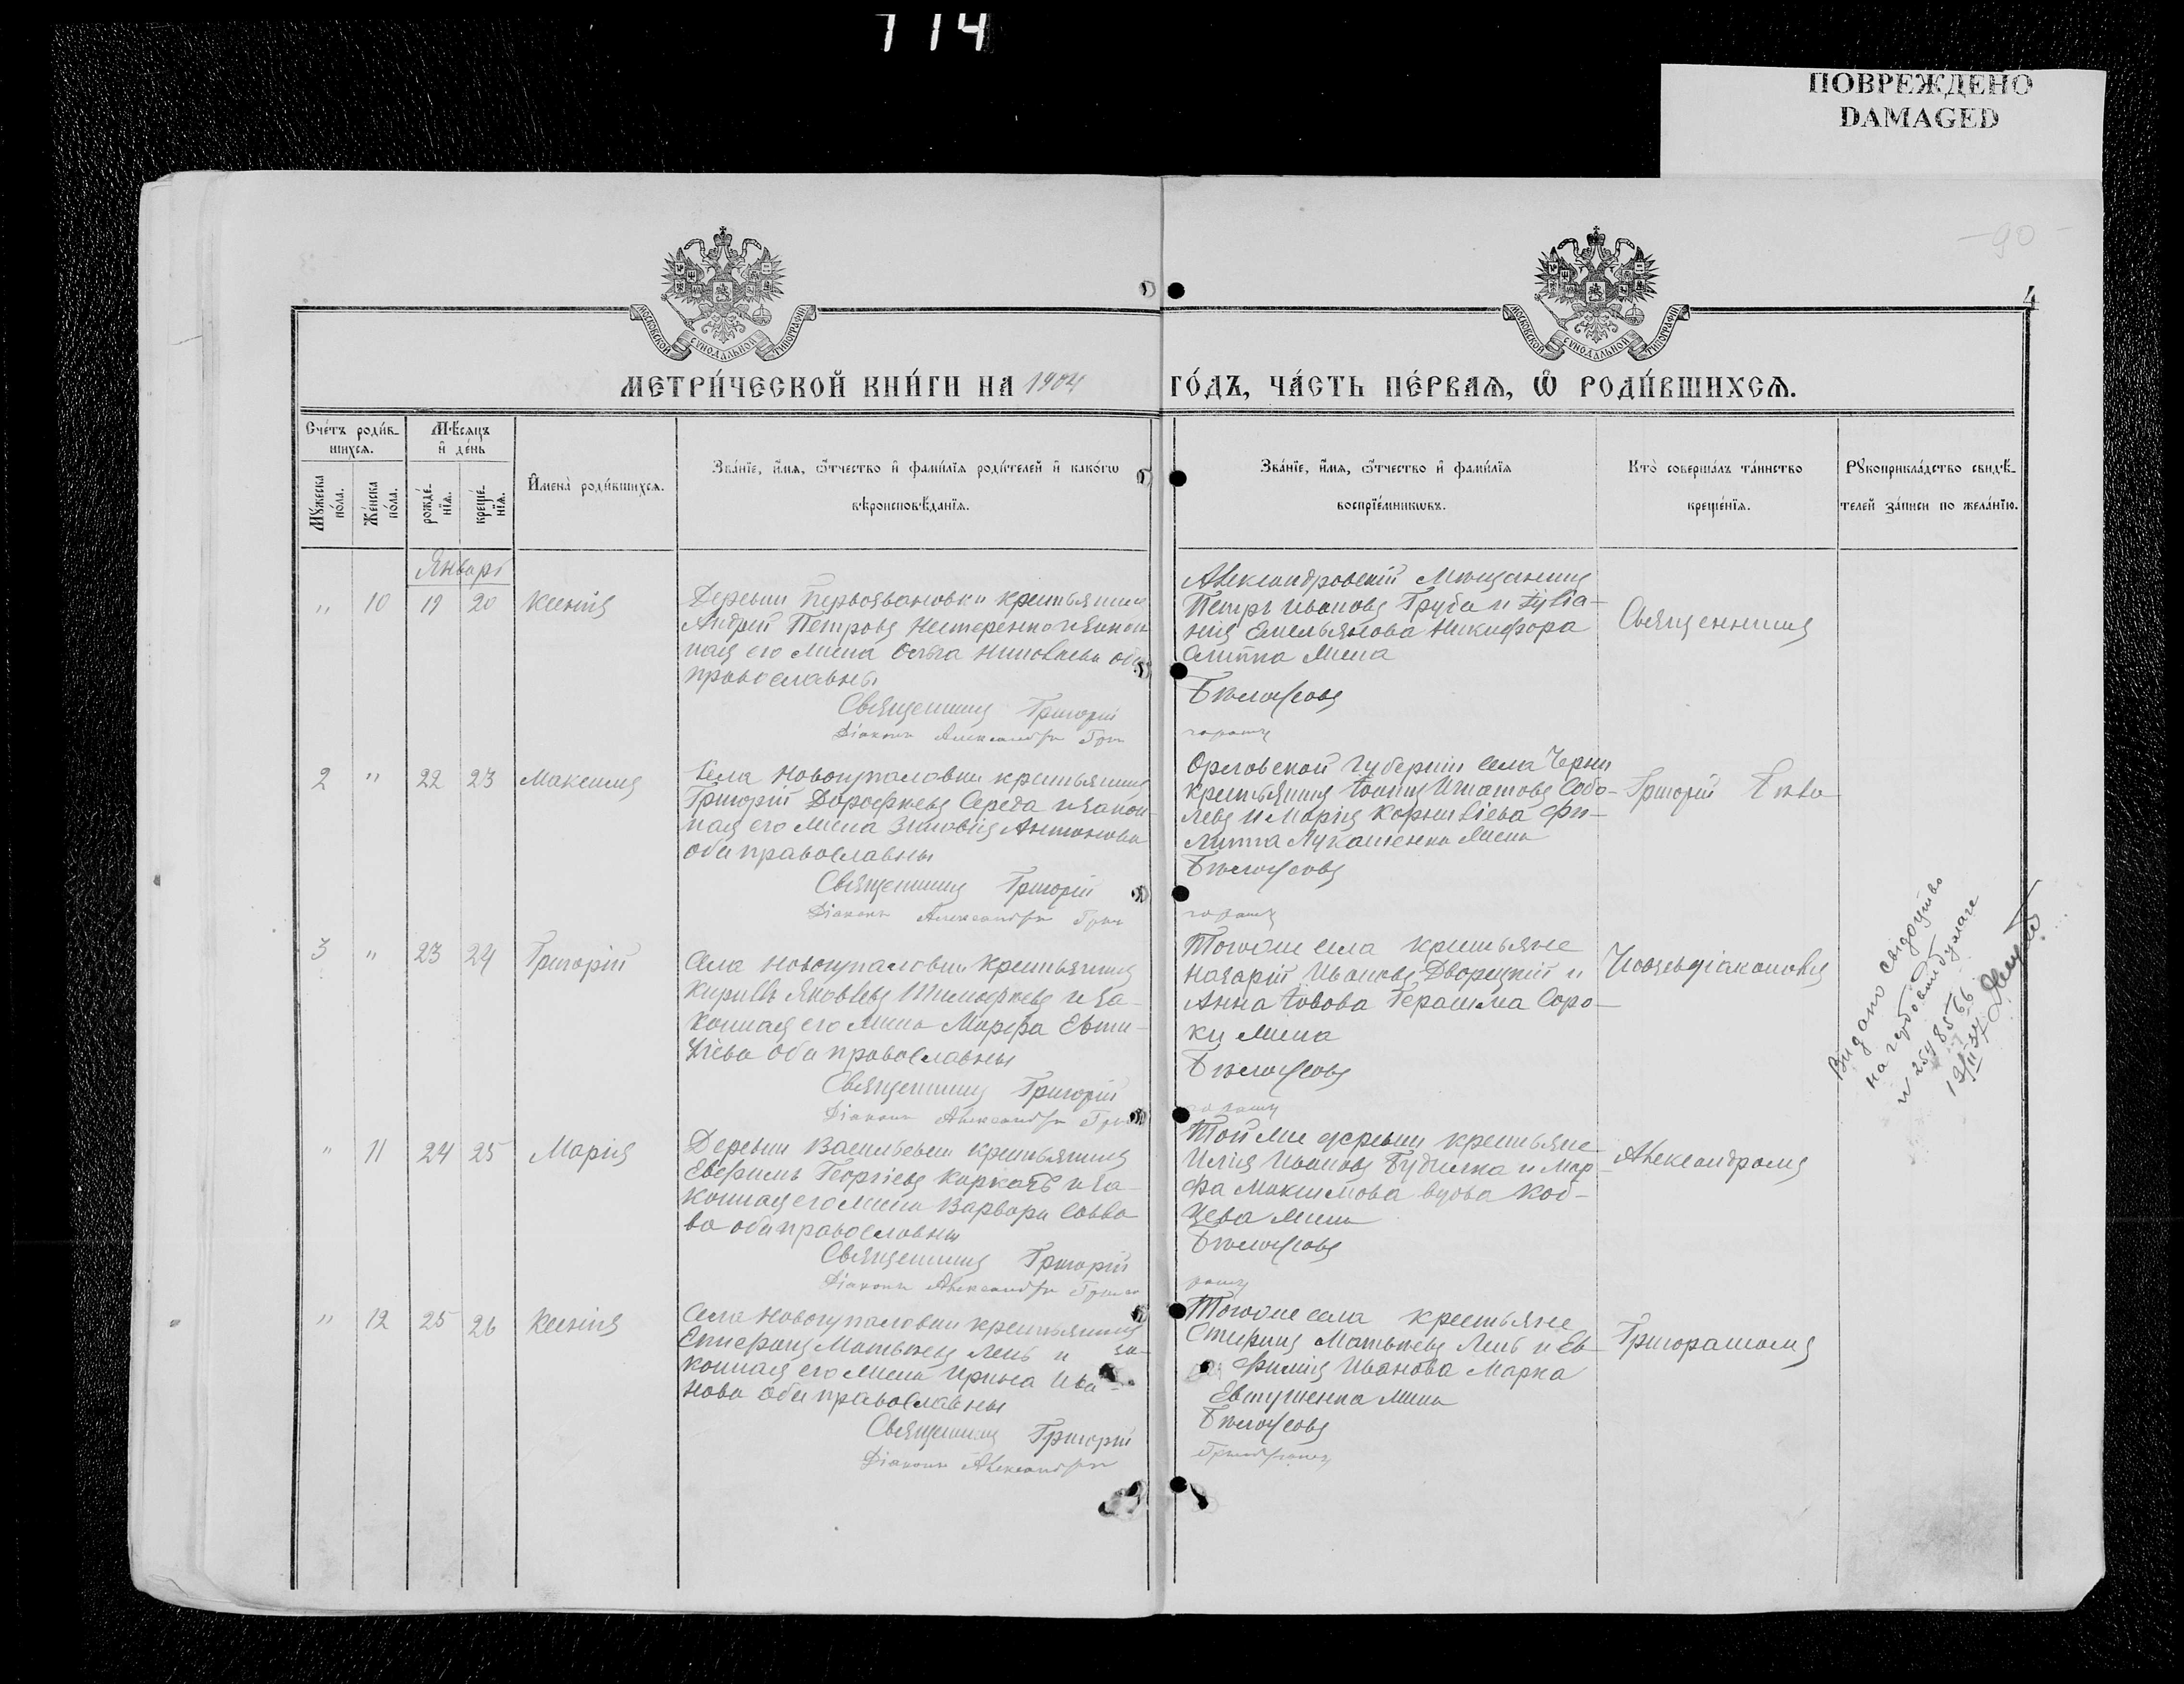 114
ПОВРЕЖДЕНО
DAMAGED
-90-
4
МОСКОВСКОЙ СѴНОДАЛЬНОЙ ТИПОГРАФІИ
МОСКОВСКОЙ СѴНОДАЛЬНОЙ ТИПОГРАФІИ
МЕТРИ́ЧЕСКОЙ КНИ́ГИ НА 1904 ГО́ДЪ, ЧА́СТЬ ПЕ́РВАѦ, Ѿ РОДИ́ВШИХСѦ.
Сче́тъ роди́в-
шихсѧ.
Мѣ́сѧцъ
и҆ де́нь
Мꙋ́жеска по́ла.
Же́нска по́ла.
рожде́-
нїѧ.
креще́-
нїѧ.
И҆мена̀ роди́вшихсѧ.
Зва́нїе, и҆́мѧ, ѻ҆́тчество и҆ фами́лїѧ роди́телей и҆ како́гѡ
вѣроисповѣ́данїѧ.
Зва́нїе, и҆́мѧ, ѻ҆́тчество и҆ фами́лїѧ
воспрїе́мникѡвъ.
Кто̀ соверша́лъ та́инство
креще́нїѧ.
Рꙋкоприкла́дство свидѣ́-
телей за́писи по жела́нїю.
Январь
" 10 19 20 Ксенія
Деревни Первозвановки крестьянинъ
Андрей Петровъ Нестеренко и закон
ная его жена Ольга Николаева оба
православны
Священникъ Григорій
Діаконъ Александръ Гри
Александровскій Мѣщанинъ
Петръ Ивановъ Груба и Іуліа-
нія Емельянова Никифора
жена
Бѣлоусовъ
горашъ
Священникъ
2 " 22 23 Максимъ
Села Новогупаловки крестьянинъ
Григорій Дорофѣевъ Середа и закон
ная его жена Зиновія Антонова
оба православны
Священникъ Григорій
Діаконъ Александръ Гри
Орловской губерніи села Черни
крестьянинъ Іоаннъ Игнатовъ Собо-
левъ и Марія Корнилiева Фи-
липпа Лукашенка жена
Бѣлоусовъ
горашъ
Григорій Бѣло
3 " 23 24 Григорій
Села Новогупаловки крестьянинъ
Кириллъ Яковлевъ Тимофѣевъ и за-
конная его жена Марфа Евти-
хіева оба православны
Священникъ Григорій
Діаконъ Александръ Гри
Тогоже села крестьяне
Назарій Ивановъ Дворецкій и
Анна Іовова Герасима Соро-
ки жена
Бѣлоусовъ
горашъ
усовъ съ діакономъ
Видано свідоцтво
на гербовій бумаге
№ 254856
" 11 24 25 Марія
Деревни Васильевки крестьянинъ
Евфимъ Георгіевъ Каркачъ и за-
конная его жена Варвара Савво
ва оба православны
Священникъ Григорій
Діаконъ Александръ Григо
Той же деревни крестьяне
Илія Ивановъ Будилка и Мар-
фа Максимова вдова Коб-
цева жена
Бѣлоусовъ
рашъ
Александромъ
" 12 25 26 Ксенія
Села Новогупаловки крестьянинъ
Стефанъ Матвѣевъ Лень и за-
конная его жена Ирина Ива-
нова оба православны
Священникъ Григорій
Діаконъ Александръ
Тогоже села крестьяне
Стефанъ Матвѣевъ Лень и Ев-
фимія Иванова Марка
Евтушенка жена
Бѣлоусовъ
Григорашъ
Григорашомъ